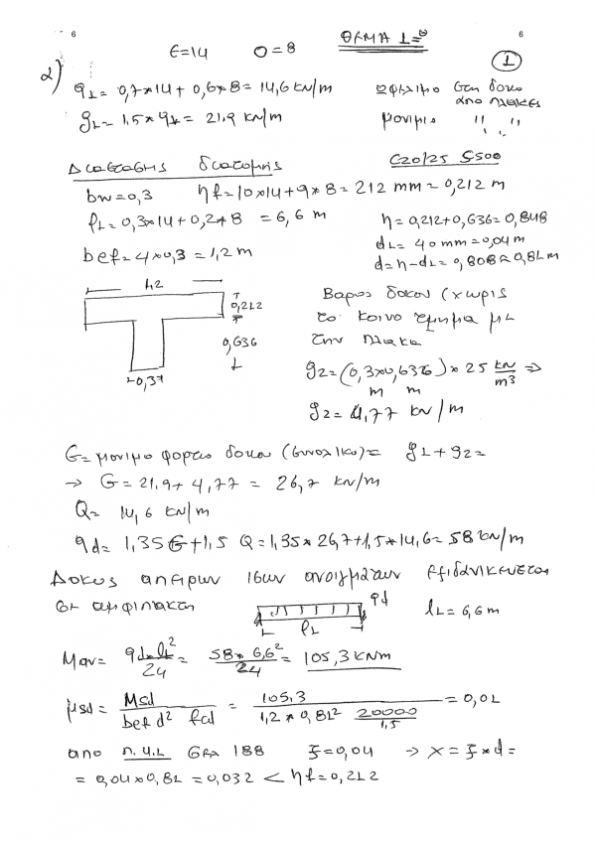 6 6
ε=14 0=8 ΘΕΜΑ 1=ο
1
α)
q1= 0,7*14+ 0,6*8= 14,6 kN/m ωφελιμο στη δοκο
απο πλακες
g1= 1,5* q1= 21,9 kN/m μονιμο '' '' ''
Διαστασης διατομης C20/25 S500
bw=0,3 hf=10*14+9*8= 212 mm= 0,212 m
l1= 0,3*14+0,2*8 = 6,6 m h=0,212+0,636=0,848
d1= 40mm=0,04m
beff=4*0,3=1,2m d=h-d1= 0,808≈0,81m
1,2
0,212
0,636
0,3
Βαρος δοκου (χωρις
το κοινο τμημα με
την πλακα
g2=(0,3*0,636)*25 kN/m3 ⇒
m m
g2= 4,77 kN/m
G=μονιμο φορτιο δοκου (συνολικο)= g1+g2=
→ G= 21,9+ 4,77 = 26,7 kN/m
Q= 14,6 kN/m
qd= 1,35G+1,5 Q=1,35*26,7+1,5*14,6=58 kN/m
Δοκος απειρων ισων ανοιγματων εξιδανικευεται
σε αμφιπακτη qd l1=6,6m
l1
Mαν= qd*l1²/24 = 58*6,6²/24 = 105,3 kNm
μsd= Msd/beff d² fcd = 105,3/1,2*0,81² 20000/1,5 = 0,01
απο π.4.1 σελ 188 ξ=0,04 → x=ξ*d=
= 0,04*0,81 =0,032 < hf=0,212